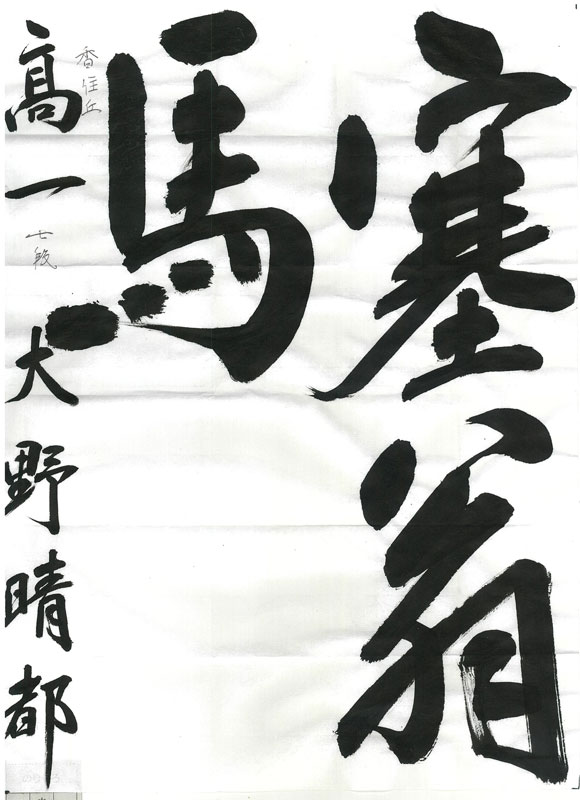 塞翁
馬
高一 大野晴都
香住丘
七段